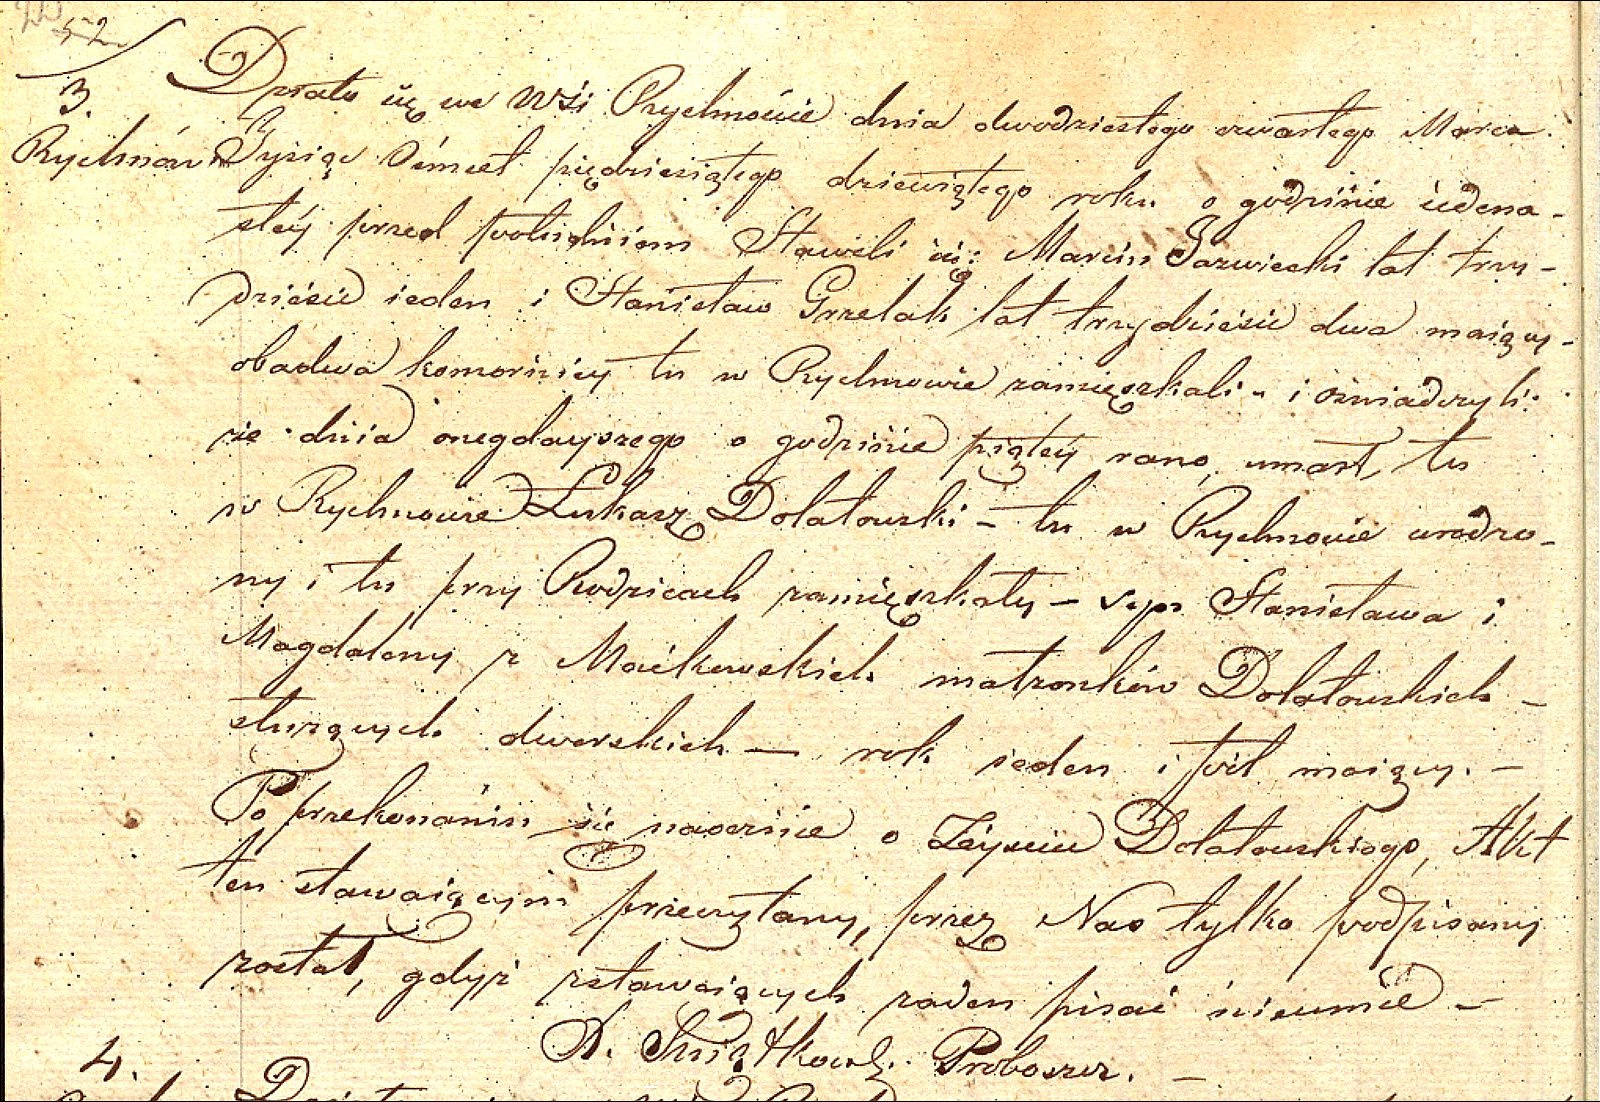 52
3.
Rychnów
Działo się we Wsi Rychnowie dnia dwódziestego czwartego Marca
Tysiąc Osmset piędziesiątego dziewiątego roku o godzinie iedena-
stéy przed południem Stawili się: Marcin Jazwiecki lat trzy-
dzieście ieden i Stanisław Grzelak lat trzydzieście dwa maiący-
obadwa komornicy tu w Rychnowie zamięszkali - i oswiadczyli:
że dnia onegdayszego o godzinie piątéy rano, umarł, tu
w Rychnowie Łukasz Dolatowski - tu w Rychnowie urodzo-
ny i tu przy Rodzicach zamięszkały - syn Stanisława i
Magdaleny z Maćkowskich małżonków Dolatowskich -
służących dworskich — rok ieden i pół maiący. -
Po przekonaniu się naocznie o Zéyściu Dolatowskiego, Akt
ten stawaiącym przeczytany, przez Nas tylko podpisany
został, gdyż zstawaiących żaden pisać nieumie -
Proboszcz. -
4.